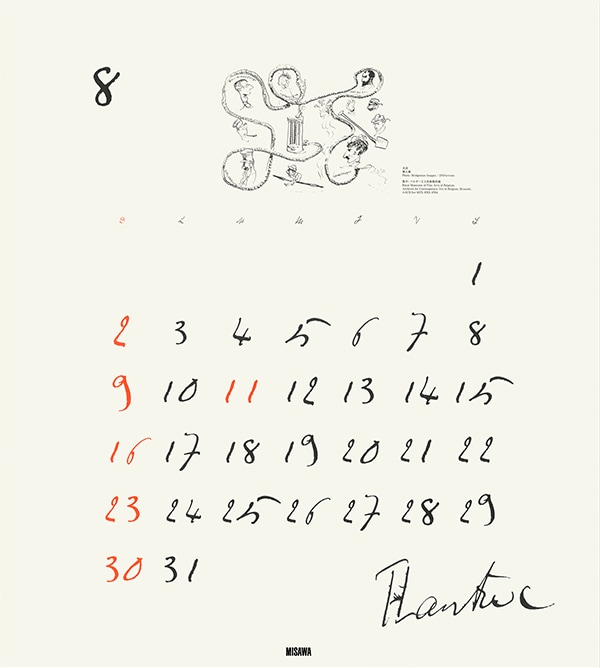 8
D L M M J V S
1
2 3 4 5 6 7 8
9 10 11 12 13 14 15
16 17 18 19 20 21 22
23 24 25 26 27 28 29
30 31
MISAWA